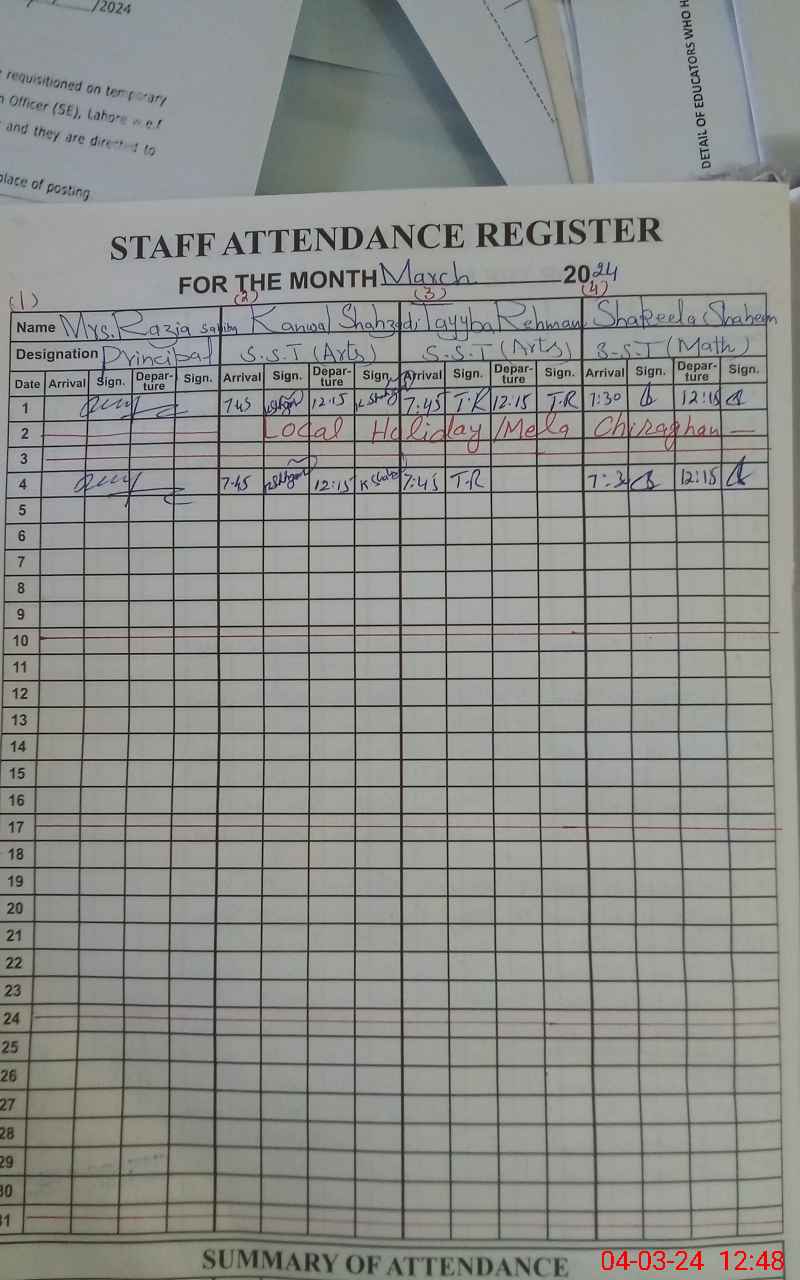 /2024
requisitioned on temporary
Officer (SE), Lahore w.e.f
and they are directed to
place of posting
DETAIL OF EDUCATORS WHO H
STAFF ATTENDANCE REGISTER
FOR THE MONTH March 2024
(1) (2) (3) (4)
Name Mrs. Razia Sahiba Kanwal Shahzadi Tayyba Rehman Shakeela Shaheen
Designation Principal S.S.T (Arts) S.S.T (Arts) S.S.T (Math)
Date Arrival Sign. Depar-ture Sign. Arrival Sign. Depar-ture Sign. Arrival Sign. Depar-ture Sign. Arrival Sign. Depar-ture Sign.
1 7:45 12:15 7:45 T.R 12:15 T.R 7:30 12:15
2 Local Holiday/Mela Chiraghan
3
4 7:45 12:15 7:45 T.R 7:3 12:15
5
6
7
8
9
10
11
12
13
14
15
16
17
18
19
20
21
22
23
24
25
26
27
28
29
30
31
SUMMARY OF ATTENDANCE
04-03-24 12:48